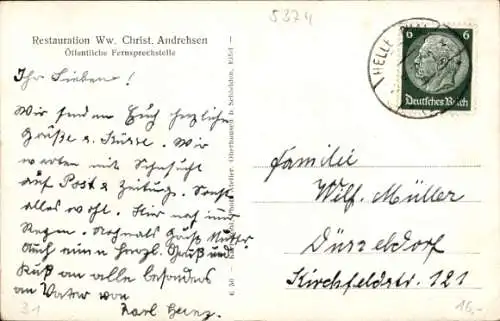 5374
Restauration Ww. Christ. Andrehsen
Öffentliche Fernsprechstelle
Ihr Lieben!
Wir senden Euch herzliche
Grüße u. Küsse. Wir
warten mit Sehnsucht
auf Post & Zeitung. Sonst
alles wohl. Hier noch immer
Regen. Nochmals Grüße Mutter
Auch einen herzl. Gruß und
Kuß an alle besonders
an Vater von
Karl Heinz.
HELLE
6 6
Deutsches Reich
Familie
Wilh. Müller
Düsseldorf
Kirchfeldstr. 121
16,-